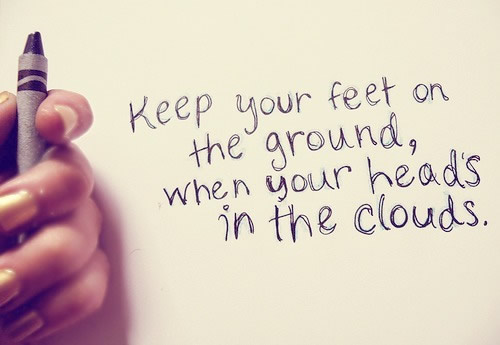 Keep your feet on
the ground,
when your head's
in the clouds.